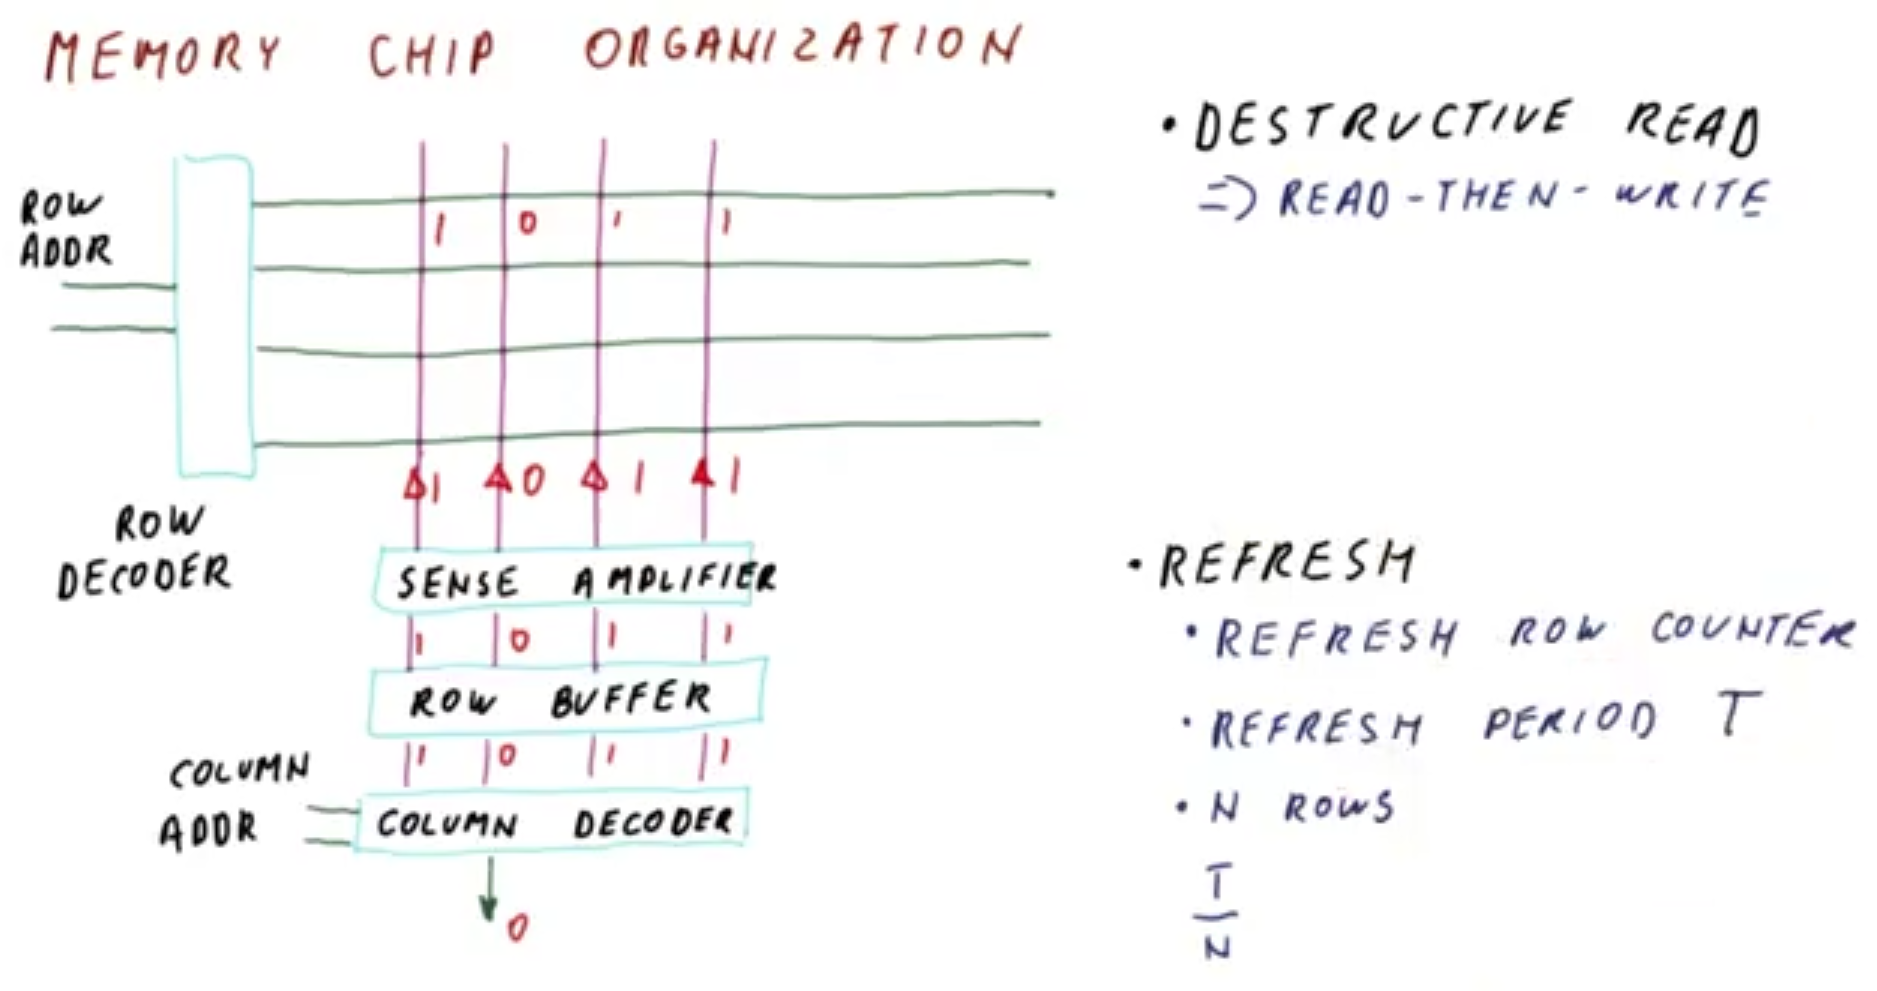 MEMORY CHIP ORGANIZATION
ROW
ADDR
1 0 1 1
1 0 1 1
ROW
DECODER
SENSE AMPLIFIER
1 0 1 1
ROW BUFFER
1 0 1 1
COLUMN
ADDR
COLUMN DECODER
0
• DESTRUCTIVE READ
=> READ-THEN-WRITE
• REFRESH
• REFRESH ROW COUNTER
• REFRESH PERIOD T
• N ROWS
T
N